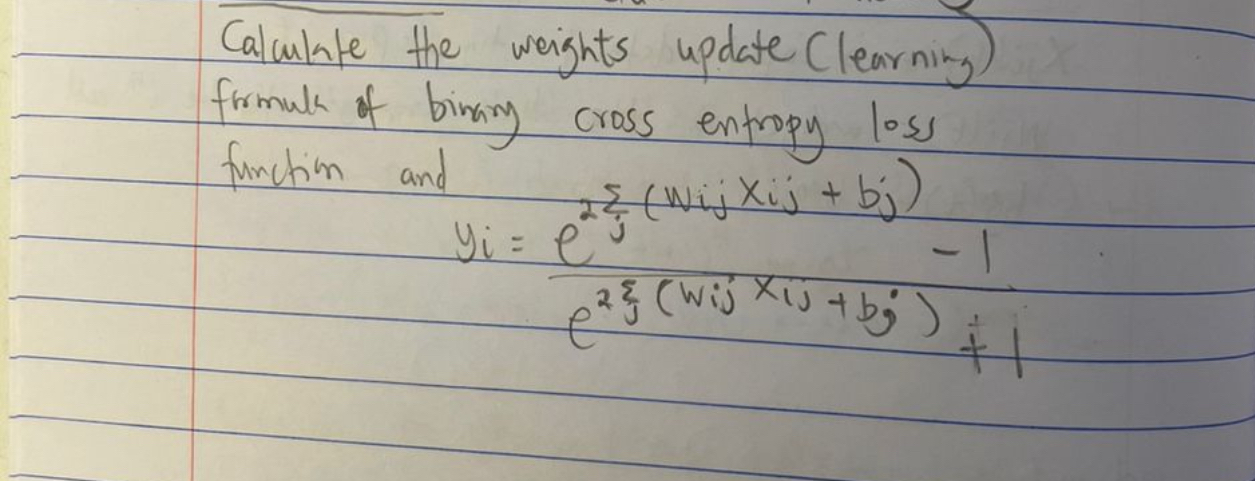 Calculate the weights update (learning)
formula of binary cross entropy loss
function and
yi = e^{2 Σ_j (wij xij + bj)} - 1
e^{2 Σ_j (wij xij + bj)} + 1